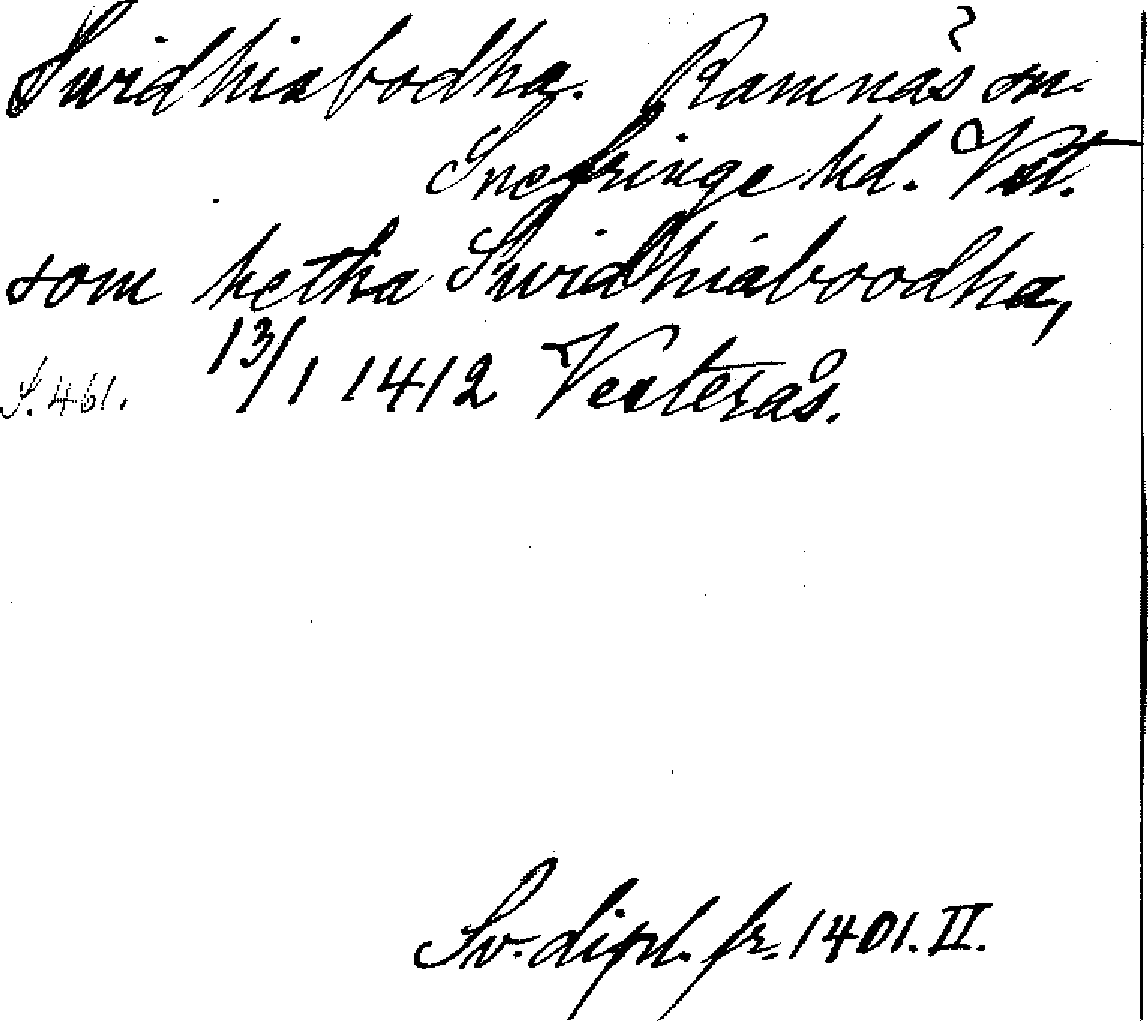 Swidhiabodha. Ramnäs sn. ?
Snefringe hd. Vstl.
som hetha Swidhiaboodha,
S. 461. 13/1 1412 Vesterås.
Sv. dipl. fr. 1401. II.